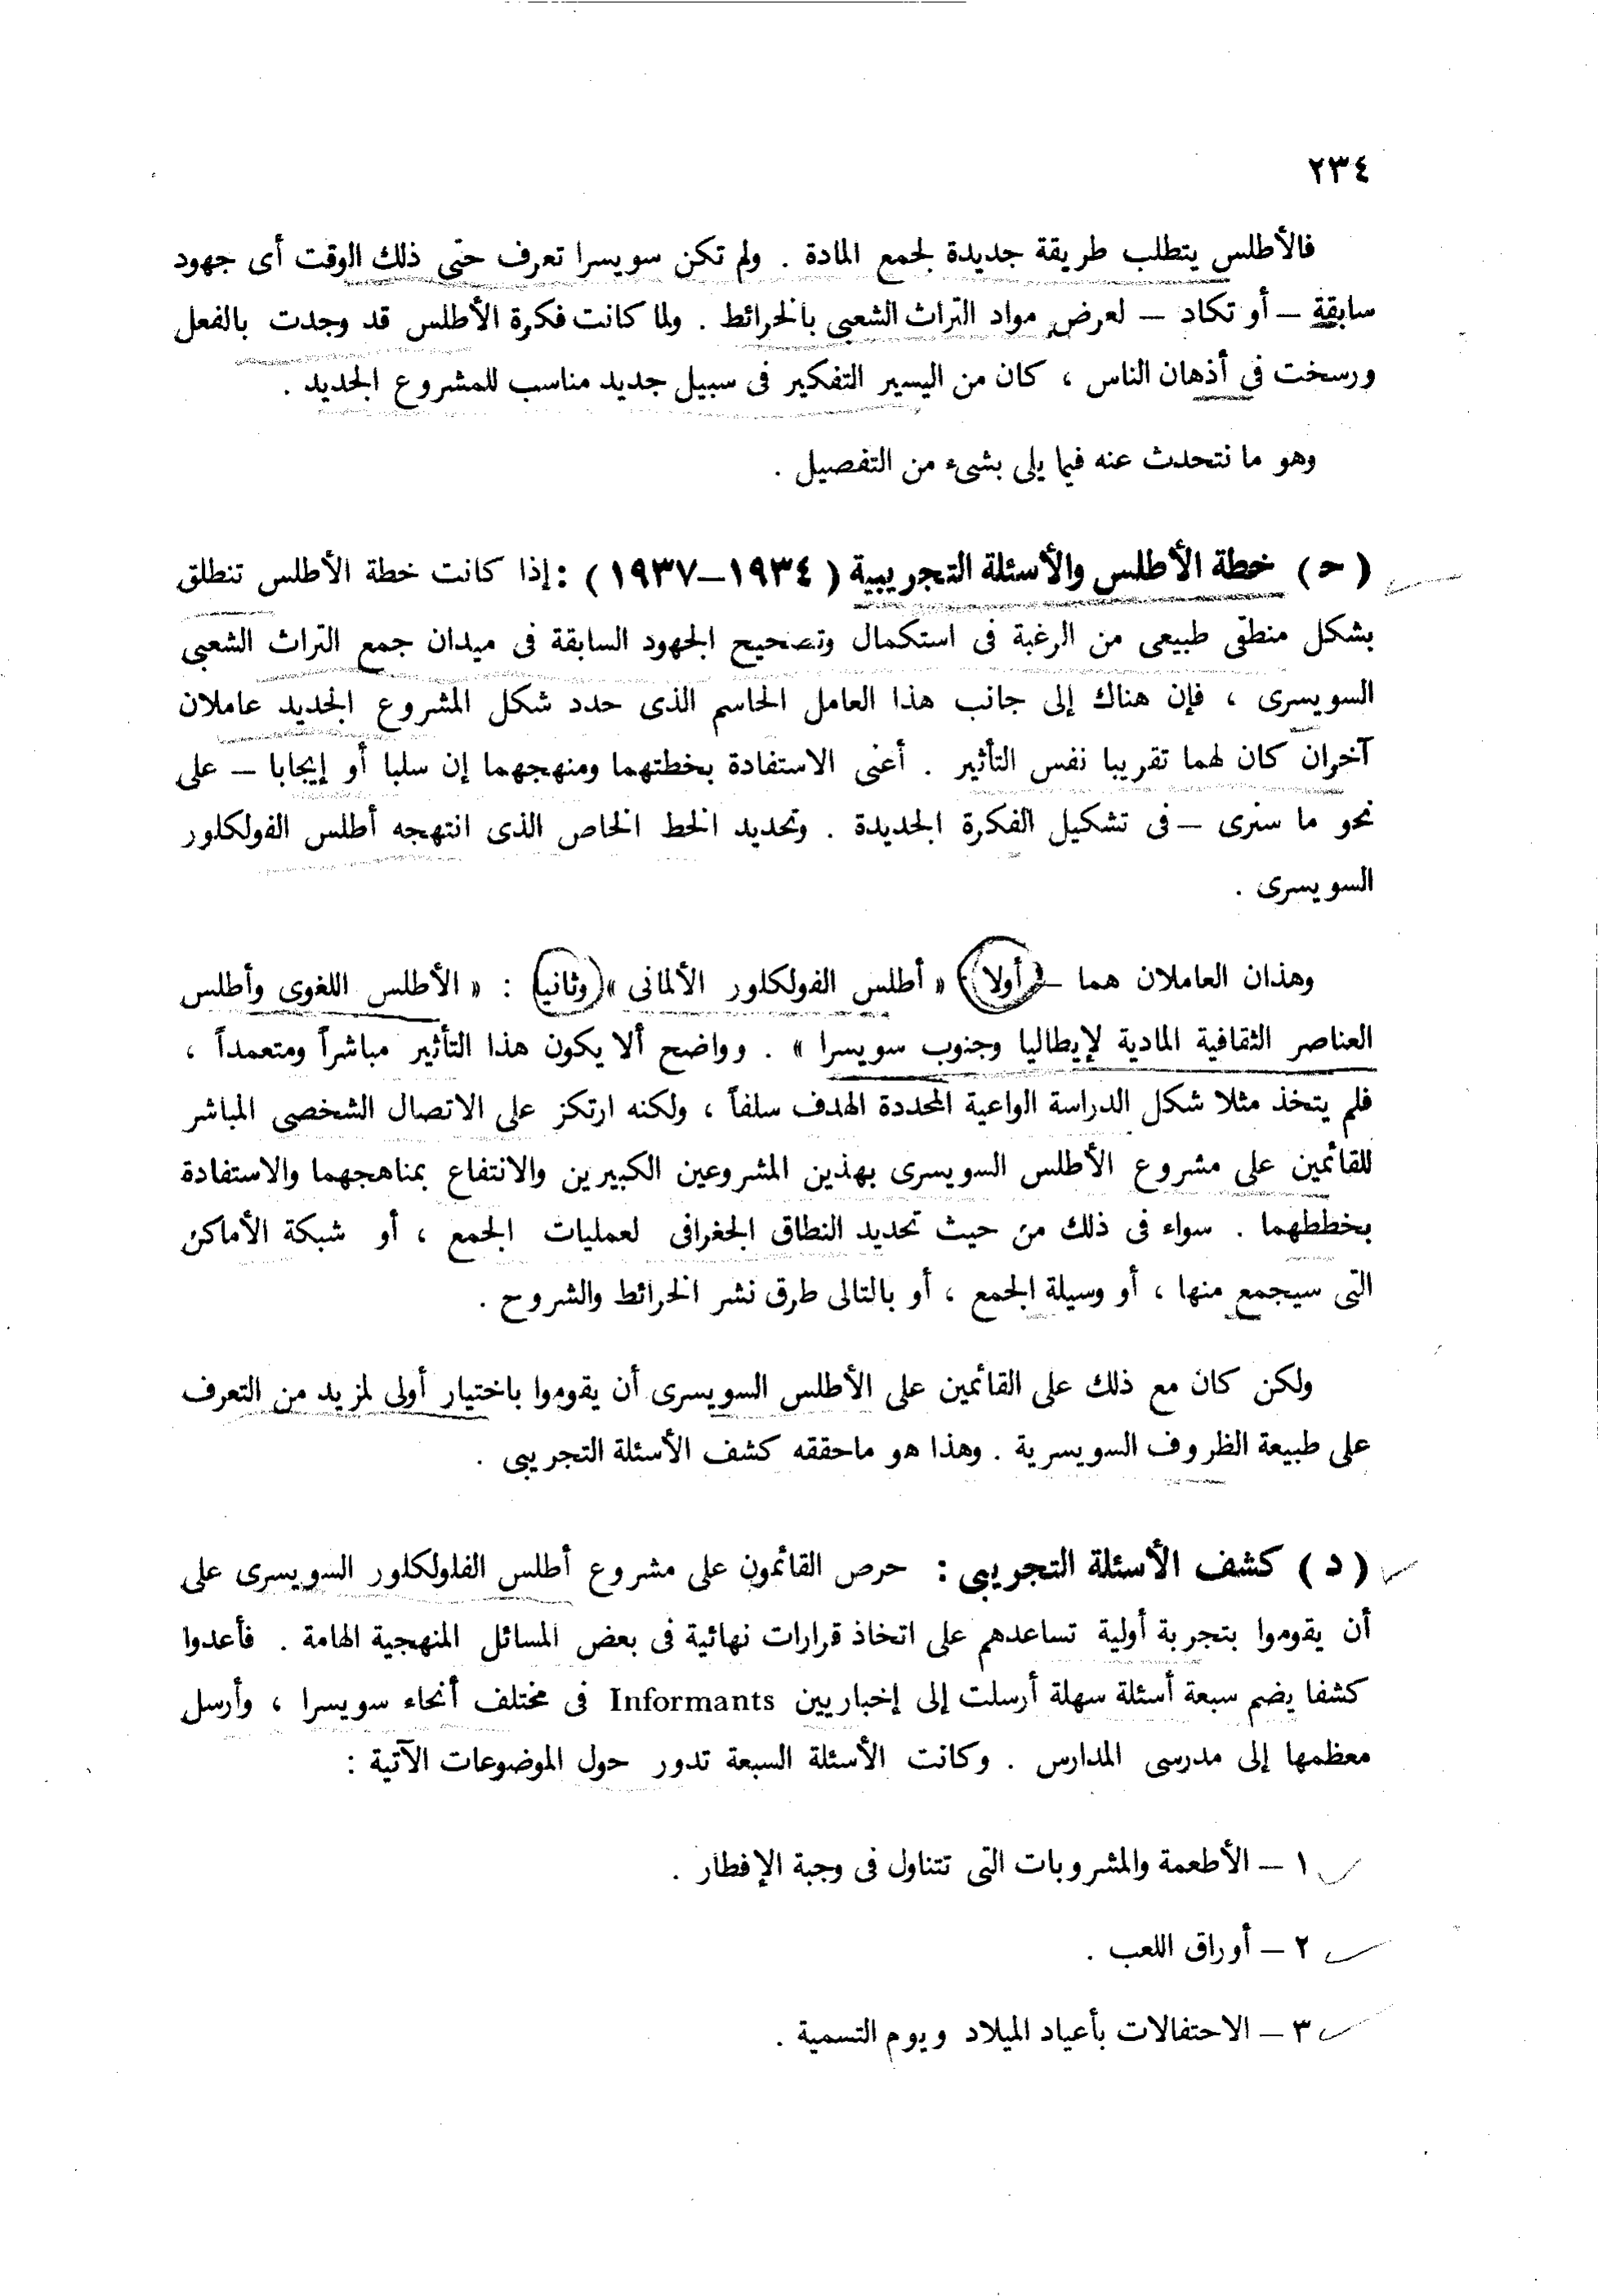 ٢٣٤
فالأطلس يتطلب طريقة جديدة لجمع المادة . ولم تكن سويسرا تعرف حتى ذلك الوقت أى جهود
سابقة – أو تكاد – لعرض مواد التراث الشعبى بالخرائط . ولما كانت فكرة الأطلس قد وجدت بالفعل
ورسخت فى أذهان الناس ، كان من اليسير التفكير فى سبيل جديد مناسب للمشروع الجديد .
وهو ما نتحدث عنه فيما يلى بشىء من التفصيل .
( ح ) خطة الأطلس والأسئلة التجريبية ( ١٩٣٤–١٩٣٧ ) : إذا كانت خطة الأطلس تنطلق
بشكل منطقى طبيعى من الرغبة فى استكمال وتصحيح الجهود السابقة فى ميدان جمع التراث الشعبى
السويسرى ، فإن هناك إلى جانب هذا العامل الحاسم الذى حدد شكل المشروع الجديد عاملان
آخران كان لهما تقريبا نفس التأثير . أعنى الاستفادة بخطتهما ومنهجهما إن سلبا أو إيجابا – على
نحو ما سنرى – فى تشكيل الفكرة الجديدة . وتحديد الخط الخاص الذى انتهجه أطلس الفولكلور
السويسرى .
وهذان العاملان هما – أولا : « أطلس الفولكلور الألمانى » وثانيا : « الأطلس اللغوى وأطلس
العناصر الثقافية المادية لإيطاليا وجنوب سويسرا » . وواضح ألا يكون هذا التأثير مباشراً ومتعمداً ،
فلم يتخذ مثلا شكل الدراسة الواعية المحددة الهدف سلفاً ، ولكنه ارتكز على الاتصال الشخصى المباشر
للقائمين على مشروع الأطلس السويسرى بهذين المشروعين الكبيرين والانتفاع بمناهجهما والاستفادة
بخططهما . سواء فى ذلك من حيث تحديد النطاق الجغرافى لعمليات الجمع ، أو شبكة الأماكن
التى سيجمع منها ، أو وسيلة الجمع ، أو بالتالى طرق نشر الخرائط والشروح .
ولكن كان مع ذلك على القائمين على الأطلس السويسرى أن يقوموا باختيار أولى لمزيد من التعرف
على طبيعة الظروف السويسرية . وهذا هو ماحققه كشف الأسئلة التجريبى .
( د ) كشف الأسئلة التجريبى : حرص القائمون على مشروع أطلس الفلولكلور السويسرى على
أن يقوموا بتجربة أولية تساعدهم على اتخاذ قرارات نهائية فى بعض المسائل المنهجية الهامة . فأعدوا
كشفا يضم سبعة أسئلة سهلة أرسلت إلى إخباريين Informants فى مختلف أنحاء سويسرا ، وأرسل
معظمها إلى مدرسى المدارس . وكانت الأسئلة السبعة تدور حول الموضوعات الآتية :
١ – الأطعمة والمشروبات التى تتناول فى وجبة الإفطار .
٢ – أوراق اللعب .
٣ – الاحتفالات بأعياد الميلاد ويوم التسمية .